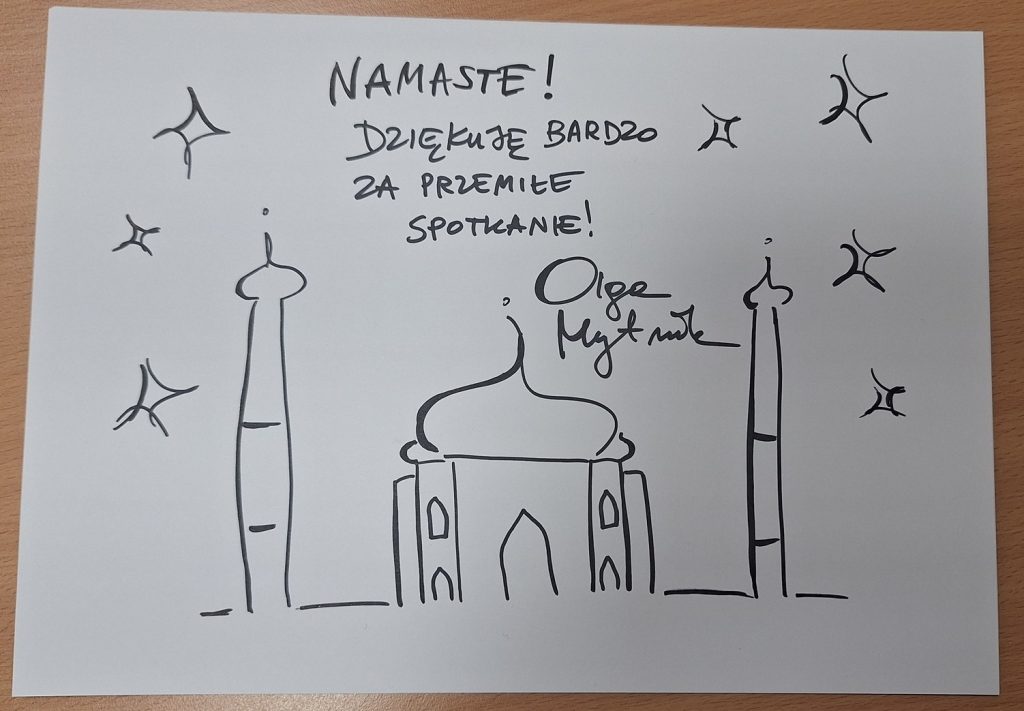 NAMASTE!
DZIĘKUJĘ BARDZO
ZA PRZEMIŁE
SPOTKANIE!
Olga
Mytnik